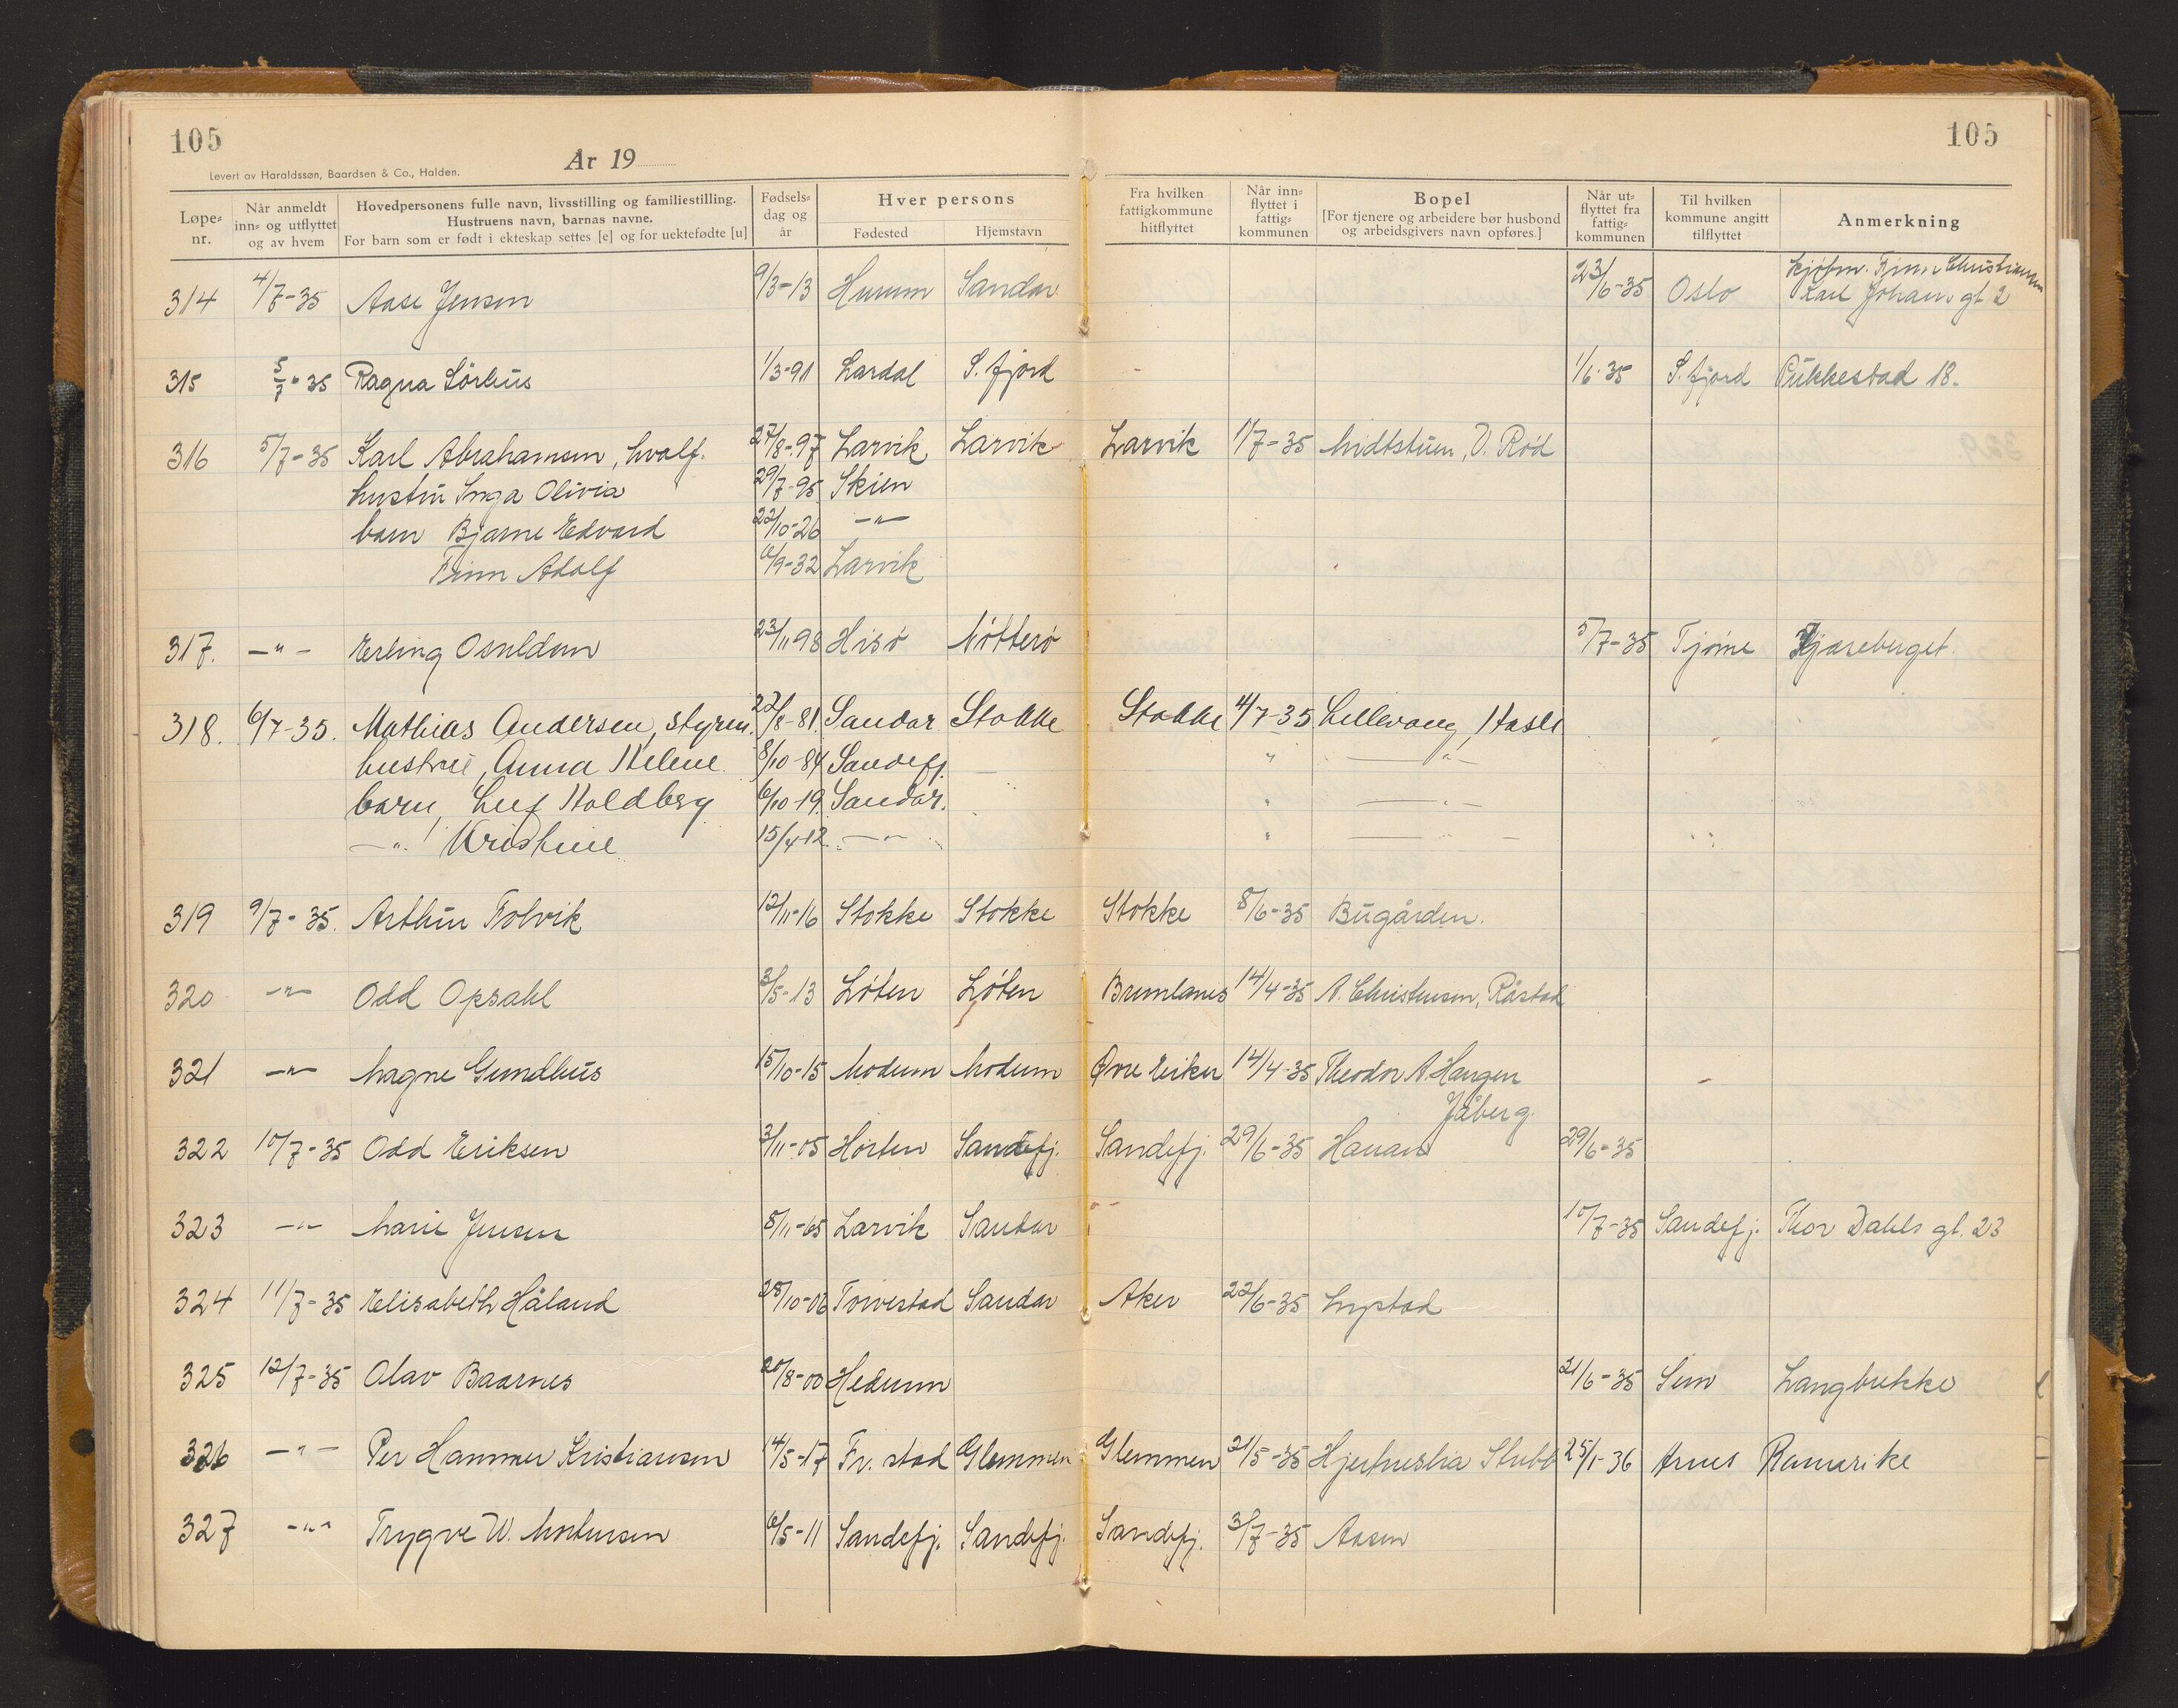 105
105
År 19
Levert av Haraldssøn, Baardsen & Co., Halden.
Løpe-nr. Når anmeldt inn- og utflyttet og av hvem Hovedpersonens fulle navn, livsstilling og familiestilling. Hustruens navn, barnas navne. For barn som er født i ekteskap settes [e] og for uektefødte [u] Fødsels-dag og år Hver persons Fødested Hjemstavn Fra hvilken fattigkommune hitflyttet Når inn-flyttet i fattig-kommunen Bopel [For tjenere og arbeidere bør husbond og arbeidsgivers navn opføres.] Når ut-flyttet fra fattig-kommunen Til hvilken kommune angitt tilflyttet Anmerkning
314 4/7-35 Aase Jensen 9/3-13 Hurum Sandar 23/6-35 Oslo Karl Johans gt 2
315 5/7-35 Ragna Sörhus 1/3-91 Lardal S.fjord 1/6-35 S.fjord Pukkestad 18.
316 5/7-35 Karl Abrahamsen, hvalf. 27/8-97 Larvik Larvik Larvik 1/7-35 Midtstuen, V. Rød
hustru Inga Olivia 29/7-95 Skien
barn Bjarne Edvard 22/10-26 -"-
Finn Adolf 6/9-32 Larvik
317. -"- Erling Osuldsen 23/11 98 Hisö Nötterö 5/7-35 Tjöme
318. 6/7-35. Mathias Andersen, styrm. 22/8-81 Sandar Stokke Stokke 4/7-35 Lillevang, Hasle
hustru, Anna Helene 8/10-84 Sandefj. " -"-
barn, Leif Holdberg 6/10-19. Sandar. " -"-
-"- Kristine 15/4-12 -"- " -"-
319 9/7-35. Arthur Tolvik 12/11-16 Stokke Stokke Stokke 8/6-35 Bugården.
320 -"- Odd Opsahl 3/5-13 Löten Löten Brunlanes 14/4-35 A. Christensen, Råstad
321 -"- Magne Gundhus 15/10-15 Modum Modum Øvre Eiker 14/4-35 Theodor A. Haugen
Jåberg.
322 10/7-35 Odd Eriksen 3/11-05 Horten Sandefj. Sandefj. 29/6-35 Hauan 29/6-35
323 -"- Marie Jensen 8/11-65 Larvik Sandar 10/7-35 Sandefj. Thor Dahls gt. 23
324 11/7-35 Elisabeth Håland 28/10-06 Torvestad Sandar Aker 22/6-35
325 12/7-35 Olav Baarnes 20/8-00 Hedrum 21/6-35 Sem Langbrekke
326 -"- Per Hammer Kristiansen 14/5-17 Fr. stad Glemmen Glemmen 21/5-35 Hjertneslia Stubb 25/1-36 Arnes Romerike
327 -"- Trygve W. Mortensen 6/5-11 Sandefj. Sandefj. Sandefj. 3/7-35 Aasen